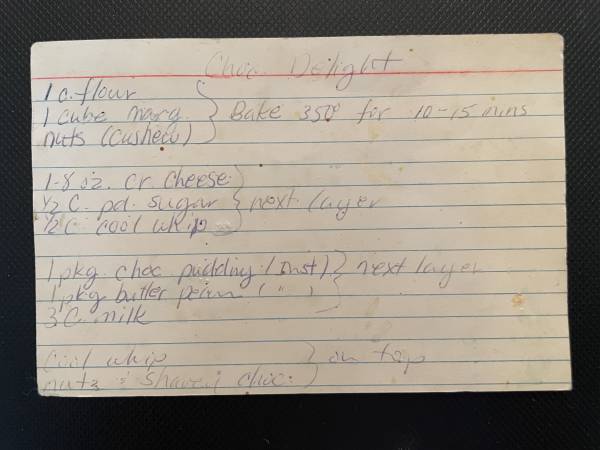 Choc. Delight
1 c. flour
1 cube marg. } Bake 350° for 10-15 mins
nuts (cashew)
1-8 oz. cr. cheese
1/2 C. pd. sugar } next layer
1/2 C. cool whip
1 pkg. choc pudding (inst) } next layer
1 pkg butter pecan ( " )
3 C. milk
Cool whip } on top
nuts & shaved choc.